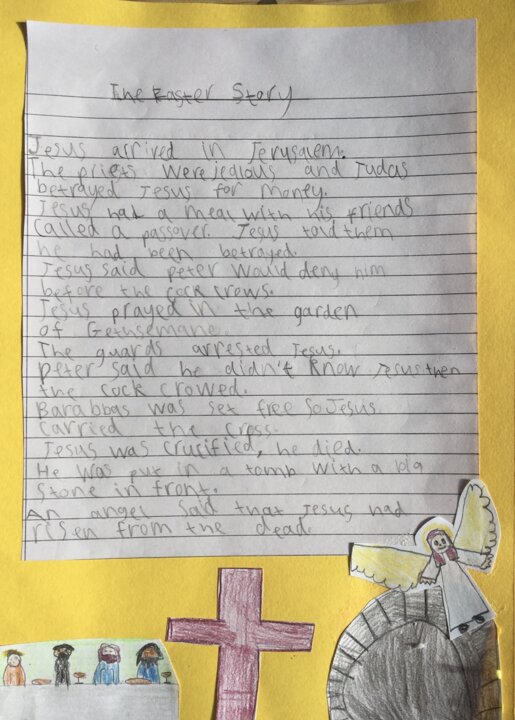 The Easter Story
Jesus arrived in Jerusalem.
The priets were jealous and Judas
betrayed Jesus for money.
Jesus had a meal with his friends
called a passover. Jesus told them
he had been betrayed.
Jesus said peter would deny him
before the cock crows.
Jesus prayed in the garden
of Gethsemane.
The guards arrested Jesus.
peter said he didn't know Jesus then
the cock crowed.
Barabbas was set free so Jesus
carried the cross.
Jesus was crucified, he died.
He was put in a tomb with a big
stone in front.
An angel said that Jesus had
risen from the dead.